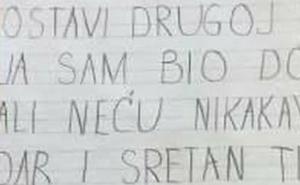 OSTAVI DRUGOJ
JA SAM BIO DO
ALI NEĆU NIKAKAV
DAR I SRETAN TI